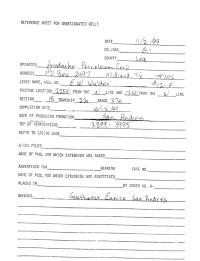 REFERENCE SHEET FOR UNDESIGNATED WELLS
DATE 11/2/99
OIL/GAS Oil
COUNTY Lea
OPERATOR Petroleum Corp
ADDRESS PO Box 2197 Midland TX 79702
LEASE NAME, WELL NO. E W Walden #12-F
FOOTAGE LOCATION FROM THE N LINE AND FROM THE W LINE
SECTION 15 TOWNSHIP 22s RANGE 37e
COMPLETION DATE
NAME OF PRODUCING FORMATION San Andres
TOP OF PERFORATIONS
DEPTH TO CASING SHOE
C-123 FILED
NAME OF POOL FOR WHICH EXTENSION WAS ASKED
ADVERTISED FOR HEARING CASE NO.
NAME OF POOL FOR WHICH EXTENSION WAS ADVERTISED
PLACED IN BY ORDER NO. R-
REMARKS Southwest Eunice San Andres